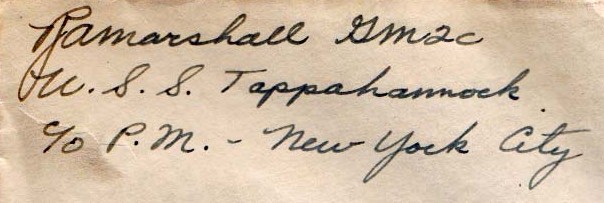 RAMarshall GM2c
U.S.S. Tappahannock
c/o P.M. - New York City